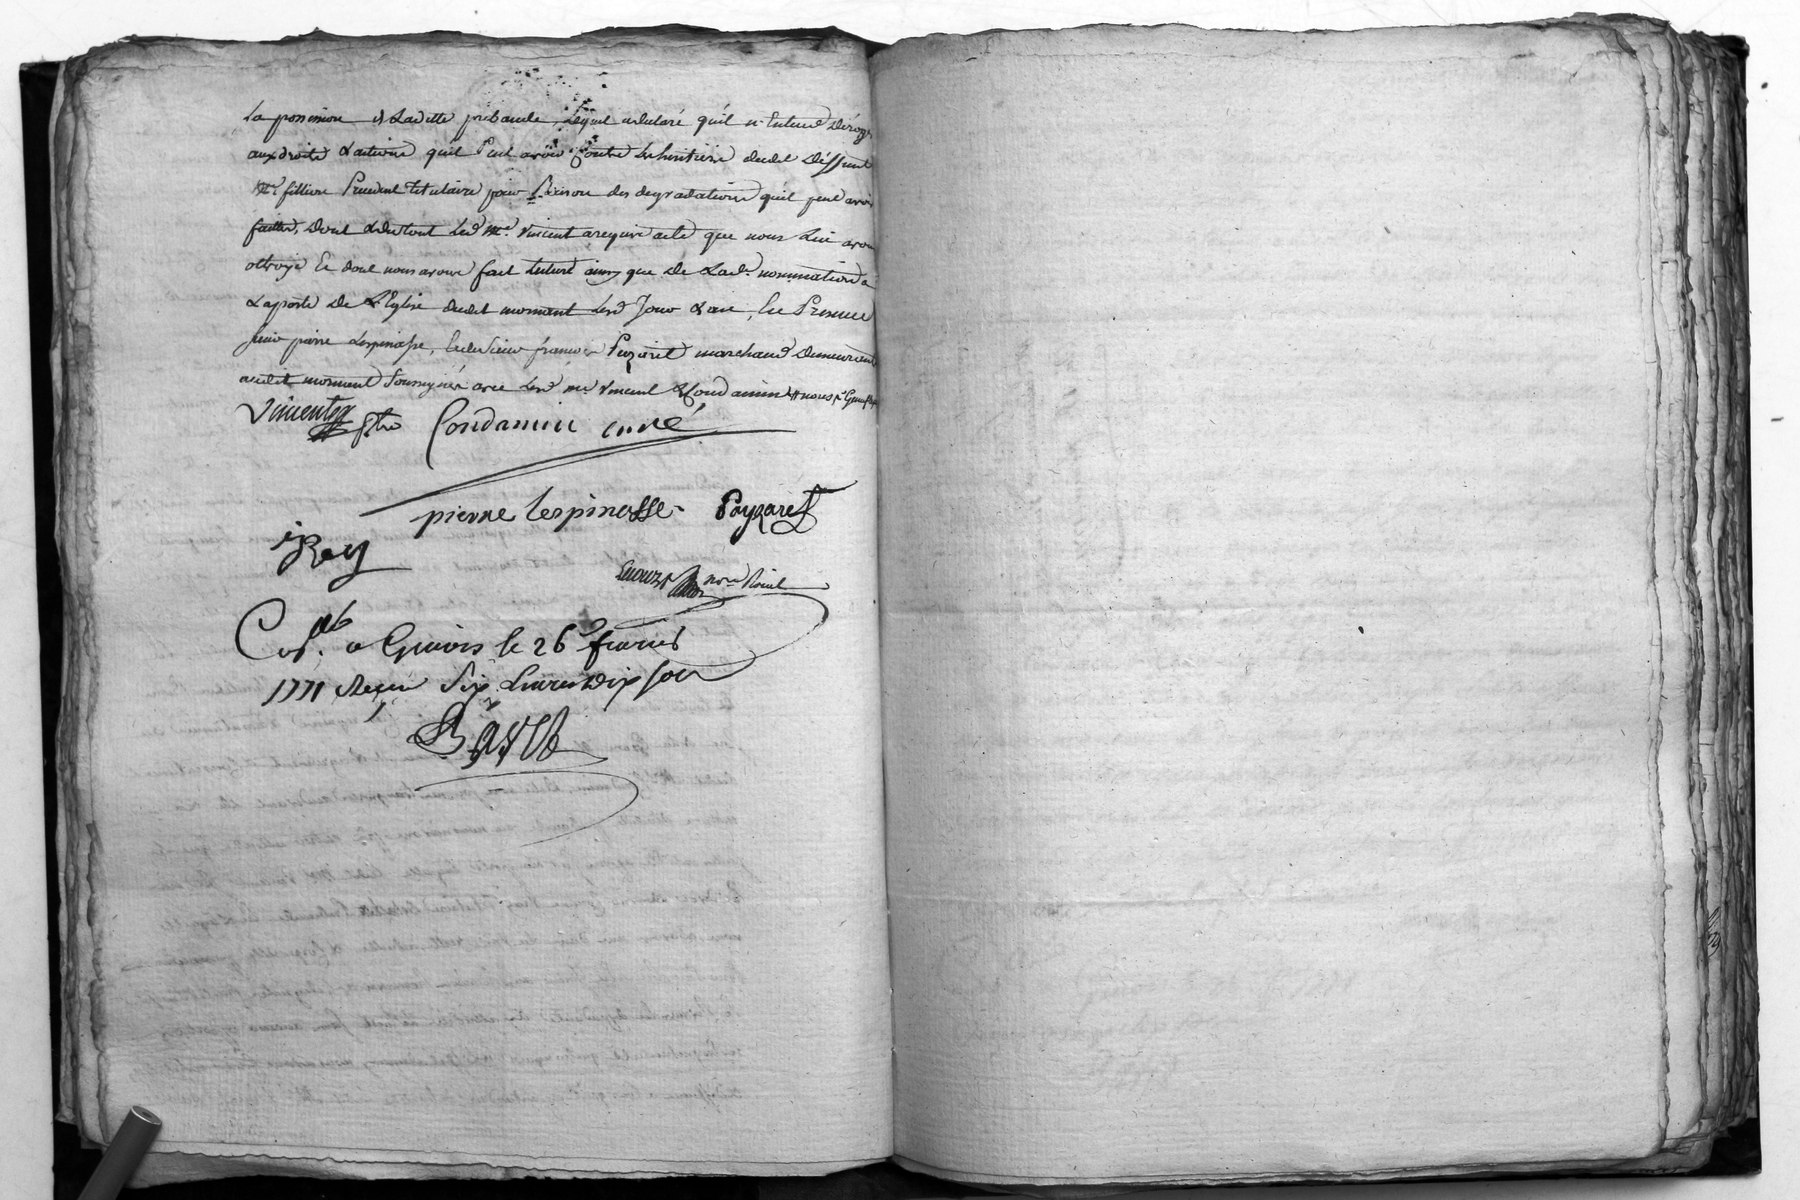 La possession de Laditte prebande, Lequel adeclaré quil n'Entend Déroger
auxdroits & actions quil Peut avoir Contre les heritiers dudit Déffunt
Mre filliere Precedent titulaire pour Raison des degradations quil peut avoir
faittes, Dont & du tout Led Mre Vincent arequis acte que nous Lui avons
ottroyé Et dont nous avons fait Lecture ainsy que De Lad. nomination a
Laporte De L'Eglise dudit monment Lesd Jour & an, En Presence
pierre Lespinasse, & du Sieur françois Payzaret marchand Demeurants
audit monment Soussignés avec Led me Vincent & Condamin
Vincent ptre Condamin curé
pierre Lespinasse Payzaret
Rey
nore Roial
Conlé. a Gnuois le 26e fevrier
1771 Reçu Six Livres Dix sols